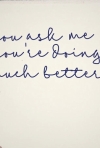 ou ask me
ou're doing
uch better